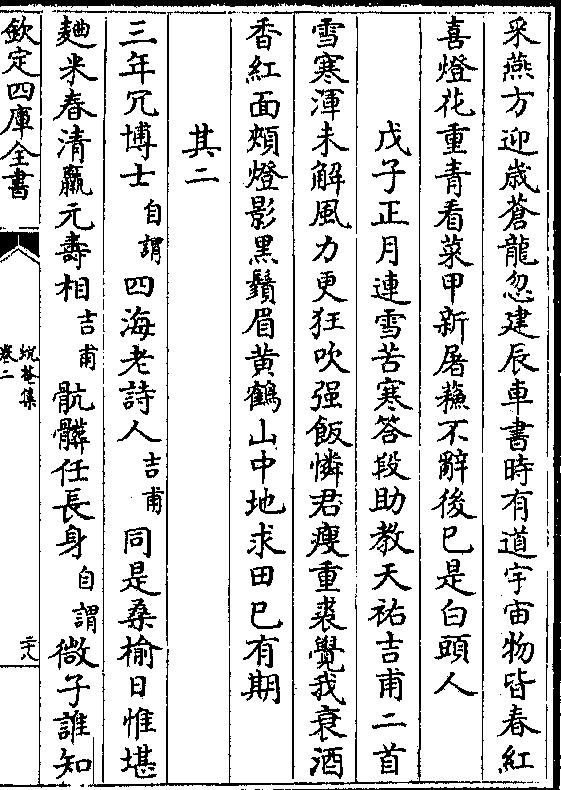 采燕方迎歳蒼龍忽建辰車書時有道宇宙物皆春紅
喜燈花重青看菜甲新屠蘓不辭後已是白頭人
戊子正月連雪苦寒答段助教天祐吉甫二首
雪寒渾未解風力更狂吹强飯憐君瘦重裘覺我衰酒
香紅面頰燈影黒鬚眉黄鶴山中地求田已有期
其二
三年冗博士自謂四海老詩人吉甫同是桑榆日惟堪
麯米春清羸元壽相吉甫骯髒任長身自謂微子誰知
欽定四庫全書
卷二
二十八